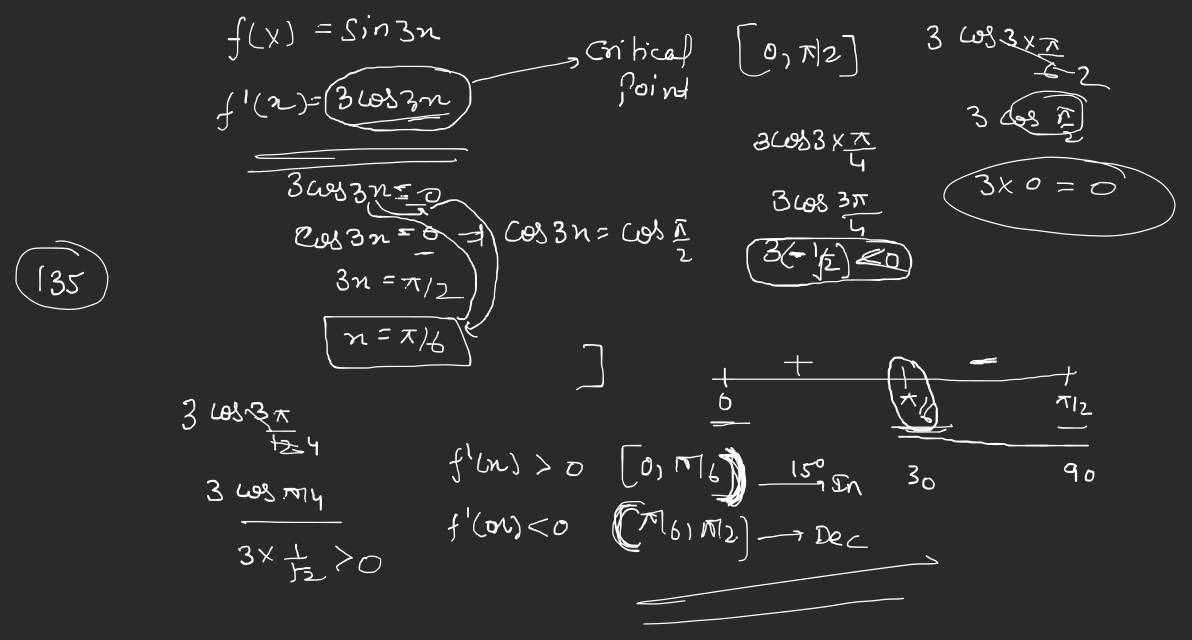 f(x) = Sin3x
f'(x) = 3cos3x
Critical Point
[0, π/2]
3cos3x = 0
cos3x = 0 ⇒ cos3x = cos π/2
3x = π/2
x = π/6
135
3cos3 × π/4
3cos 3π/4
3(-1/√2) <0
3 cos3 × π/6 2
3 cos π/2
3 × 0 = 0
]
+ -
0 π/6 π/2
30 90
3 cos3 π/12 4
3 cos π/4
3 × 1/√2 > 0
f'(x) > 0 [0, π/6) 15° → In
f'(x) < 0 (π/6, π/2] → Dec